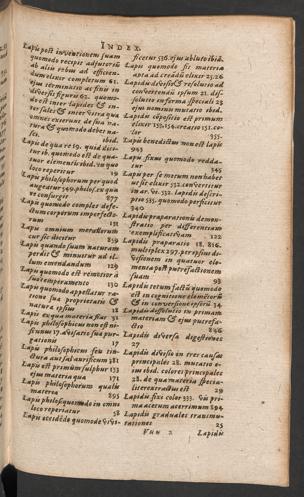 INDEX.
Lapis post inventionem suam
quomodo recipit adjutoriū
ab aliis rebus ad efficien-
dum elixir completum 61.
ejus terminatio ac finis in
diversis figuris 62. quomo-
do est inter lapides &
omnes exerunt de sua na-
tura & quomodo debet na-
sci. ibid.
Lapis de qua re 19. quid dici-
tur ib. quomodo est de qua-
tuor elementis ibid. in quo
loco reperitur 19
Lapis philosophorum per quid
augeatur 549. philos. ex qua
re consurgit 877
Lapis quomodo complet defe-
ctum corporum imperfecto-
rum 131
Lapis omnium metallorum
cur sic dicitur 859
Lapis quando suam naturam
perdit & minuitur ad il-
lum emendandum 129
Lapis quomodo est remotior à
suo temperamento 130
Lapis quomodo appellatur ra-
tione sua proprietatis &
natura ipsius 18
Lapis ex qua materia fiat 31
Lapis philosophicus non est ni-
gationis 17
Lapis philosophicus seu tin-
ctura
Lapis est primum sulphur 133
ejus materia qua 171
Lapis philosophorum qualis
materia 895
Lapis philosophicus quomodo in omni
loco reperiatur 58
Lapis occidēdo quomodo vivi-
ficetur 536. ejus ablutio ibid.
Lapis quomodo sit materia
apta ad creādū elixir 25.26
Lapidis divisio & resolutio ad
convertendū ipsum 21. dis-
solutio in forma speciali 23
ejus nominus mutatio ibid.
Lapidis cōpositio est primum
elixir 152.154. creatio 151. co-
lor 355.
Lapis benedictus non est lapis
943
Lapis fixus quomodo redda-
tur 345
Lapis per se metum non habet
ut sic elixir 352. convertitur
in ar. vi. 532. lapidis descri-
ptio 535. quomodo perficitur
540
Lapidis praparationis demon-
stratio per differentiam
exemplificativam 122
Lapidis praparatio 18. 816.
multiplex 297. per ipsius di-
visionem in quatuor ele-
menta post putrefactionem
suam 98
Lapidis totum factū quomodo
est in cognitione elemētorū
& in conversione ipsorū 34
Lapidis dissolutio in primam
materiam & ejus putrefa-
ctio 846
Lapidis diversa digestiones
27
Lapidis divisio in tres causas
principales 28. mutatio e-
jus ibid. colores principales
28. de qua materia specia-
liter extractus est 29
Lapidis fixi color 333. vis pri-
ma acetum acerrimum 594
Lapidis graduales transmu-
tationes 25
Vuu 2 Lapidis